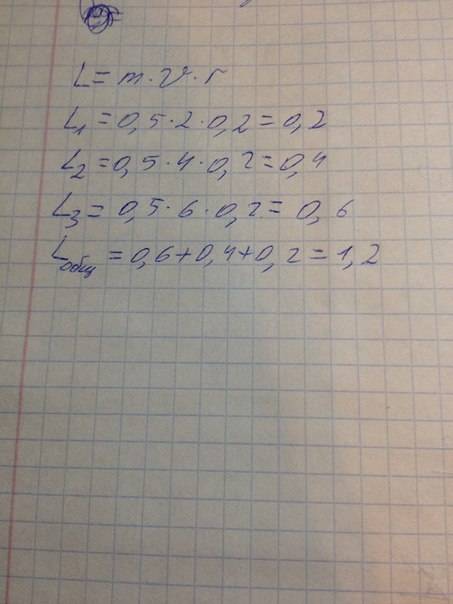 L = m · v · r
L₁ = 0,5 · 2 · 0,2 = 0,2
L₂ = 0,5 · 4 · 0,2 = 0,4
L₃ = 0,5 · 6 · 0,2 = 0,6
Lобщ = 0,6 + 0,4 + 0,2 = 1,2